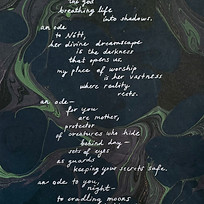 the god
breathing life
into shadows.
an ode
to Nótt,
her divine dreamscape
is the darkness
that opens us.
my place of worship
is her vastness
where reality
rests.
an ode—
for you
are mother,
protector
of creatures who hide
behind day—
sets of eyes
as guards
keeping your secrets safe.
an ode to you,
night—
to cradling moons